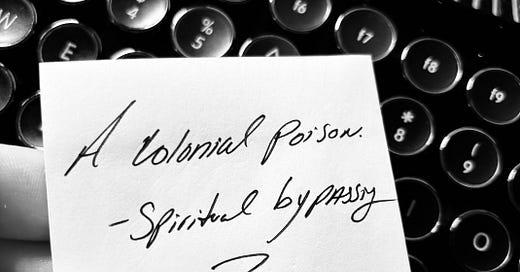 W
4
% 5
f6
f7
E
f8
f9
* 8
9
O
A Colonial Poison.
- Spiritual bypassing